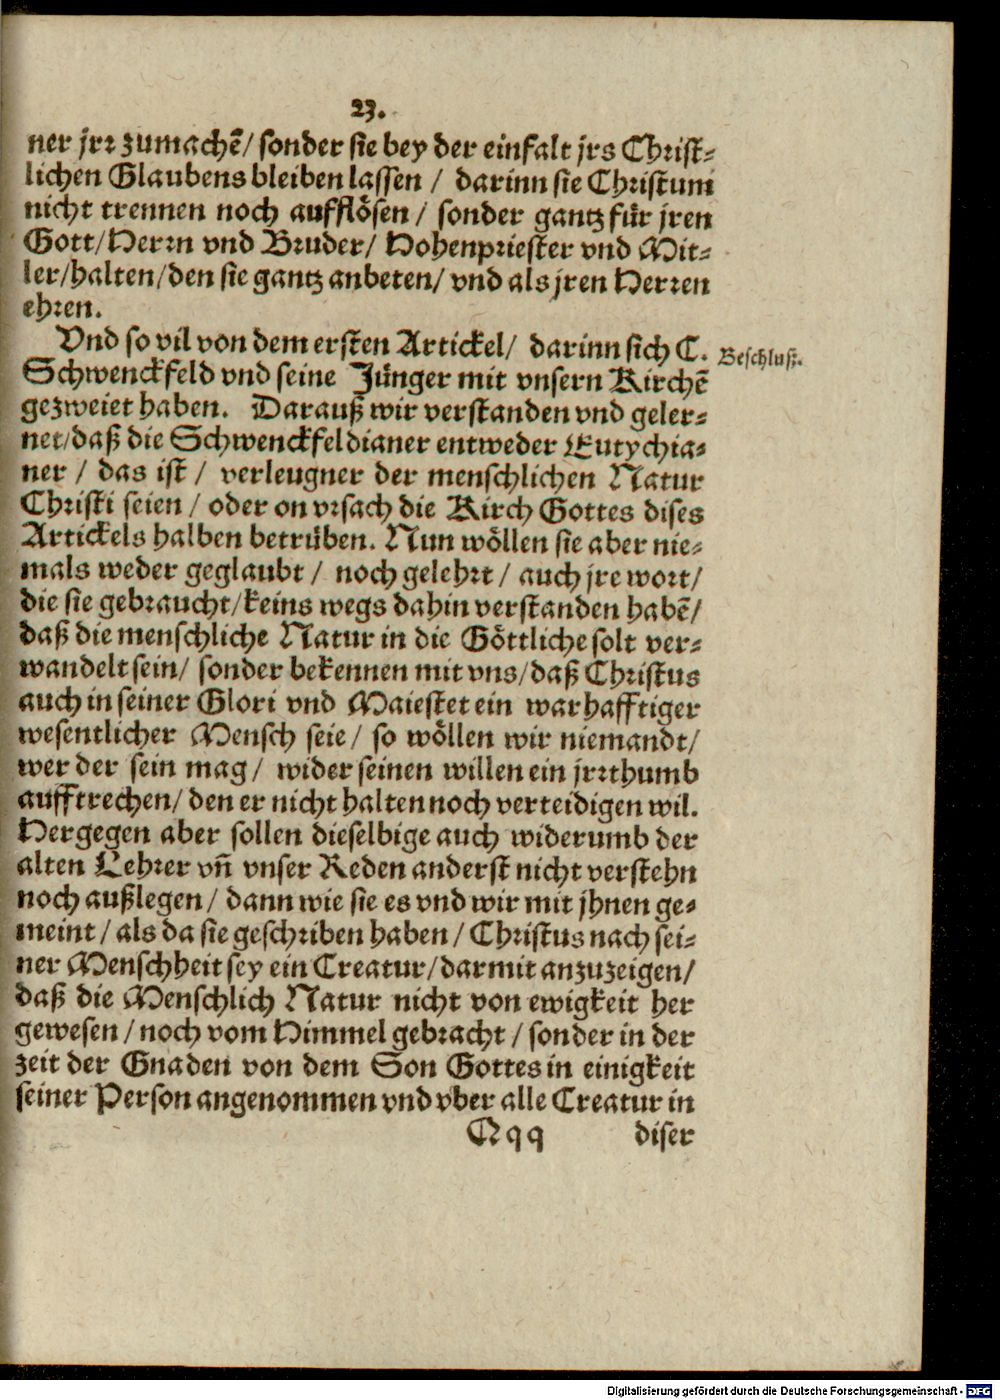 23.
ner jrr zumachẽ/ sonder sie bey der einfalt jrs Christ-
lichen Glaubens bleiben lassen / darinn sie Christum
nicht trennen noch aufflösen / sonder gantz für jren
Gott/ Herrn vnd Bruder/ Hohenpriester vnd Mit-
ler/ halten/ den sie gantz anbeten/ vnd als jren Herren
ehren.
Vnd so vil von dem ersten Artickel/ darinn sich C.
Beschluß.
Schwenckfeld vnd seine Jünger mit vnsern Kirchẽ
gezweiet haben. Darauß wir verstanden vnd geler-
net/ daß die Schwenckfeldianer entweder Eutychia-
ner / das ist / verleugner der menschlichen Natur
Christi seien / oder on vrsach die Kirch Gottes dises
Artickels halben betrüben. Nun wöllen sie aber nie-
mals weder geglaubt / noch gelehrt / auch jre wort/
die sie gebraucht/ keins wegs dahin verstanden habẽ/
daß die menschliche Natur in die Göttliche solt ver-
wandelt sein/ sonder bekennen mit vns/ daß Christus
auch in seiner Glori vnd Maiestet ein warhafftiger
wesentlicher Mensch seie / so wöllen wir niemandt/
wer der sein mag / wider seinen willen ein jrrthumb
aufftrechen/ den er nicht halten noch verteidigen wil.
Hergegen aber sollen dieselbige auch widerumb der
alten Lehrer vñ vnser Reden anderst nicht verstehn
noch außlegen / dann wie sie es vnd wir mit jhnen ge-
meint / als da sie geschriben haben / Christus nach sei-
ner Menschheit sey ein Creatur/ darmit anzuzeigen/
daß die Menschlich Natur nicht von ewigkeit her
gewesen / noch vom Himmel gebracht / sonder in der
zeit der Gnaden von dem Son Gottes in einigkeit
seiner Person angenommen vnd vber alle Creatur in
Qqq diser
Digitalisierung gefördert durch die Deutsche Forschungsgemeinschaft - DFG